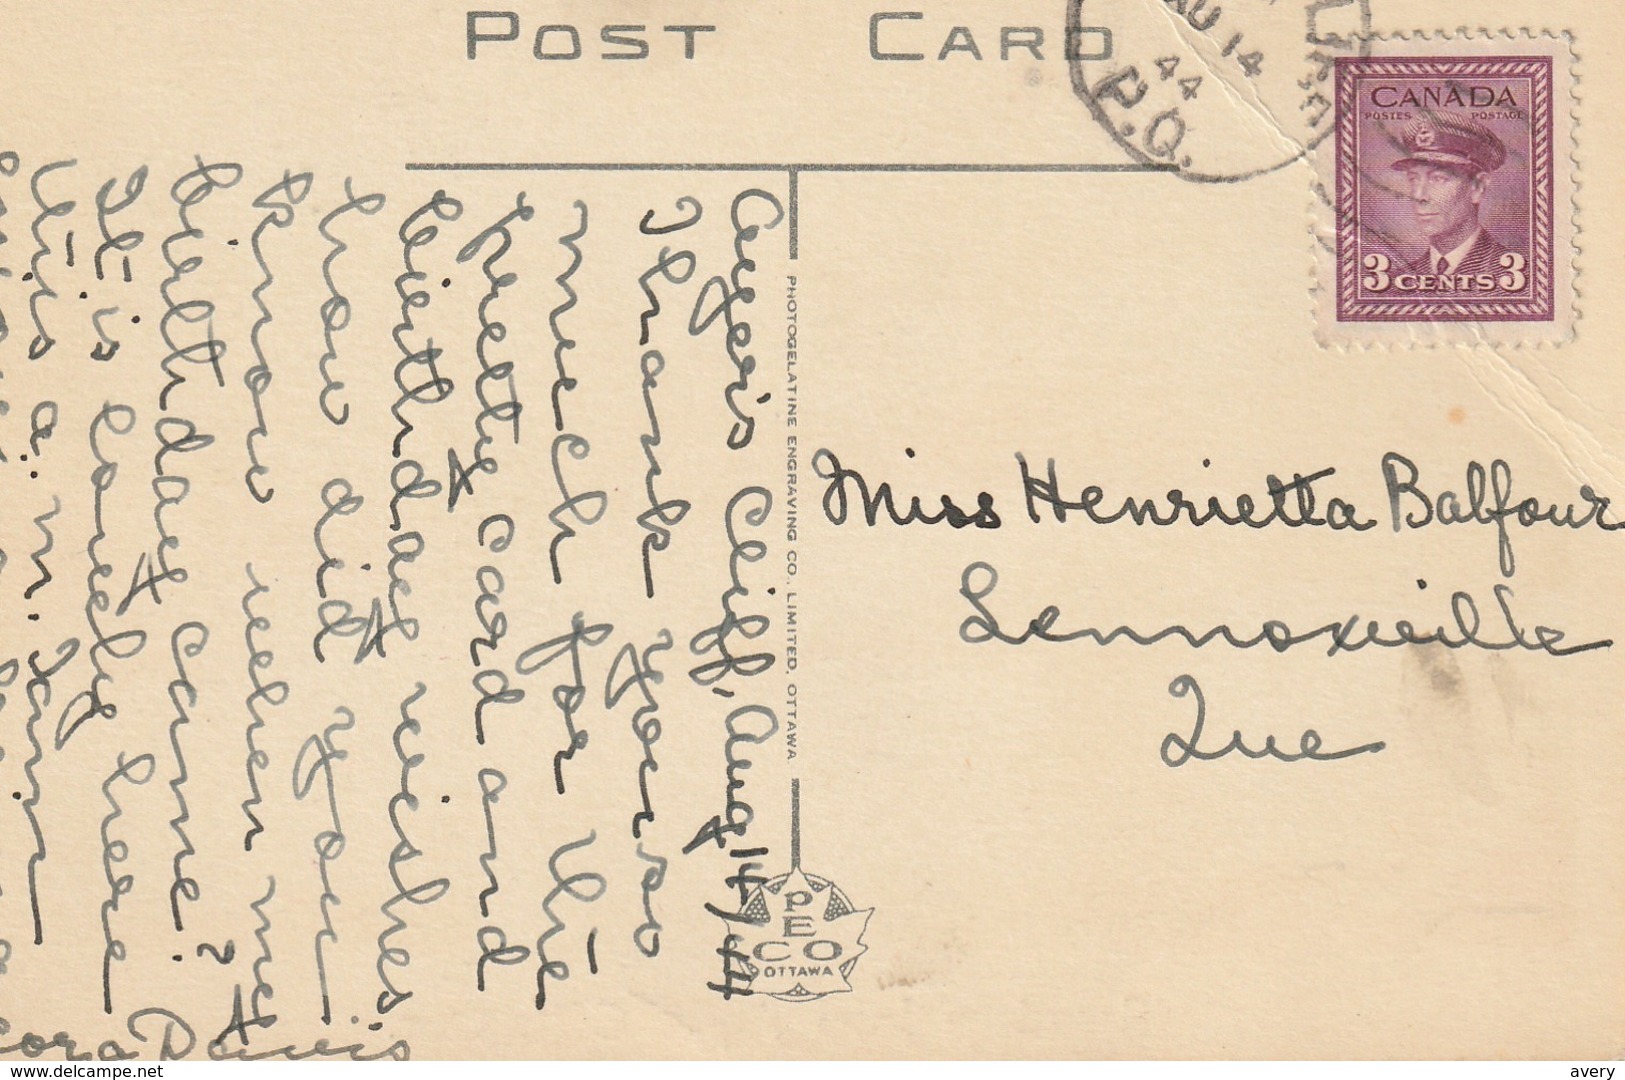 POST CARD
AU 14
44
P.Q.
CANADA
POSTES POSTAGE
3 CENTS 3
Ayer's Cliff, Aug 14/44
Thank you so
much for the
pretty card and
birthday wishes
how did you
know when my
birthday came?
It is lovely here
this a.m. Sam
Cora Davis
PHOTOGELATINE ENGRAVING CO., LIMITED, OTTAWA
PECO
OTTAWA
Miss Henrietta Balfour
Lennoxville
Que
www.delcampe.net
avery